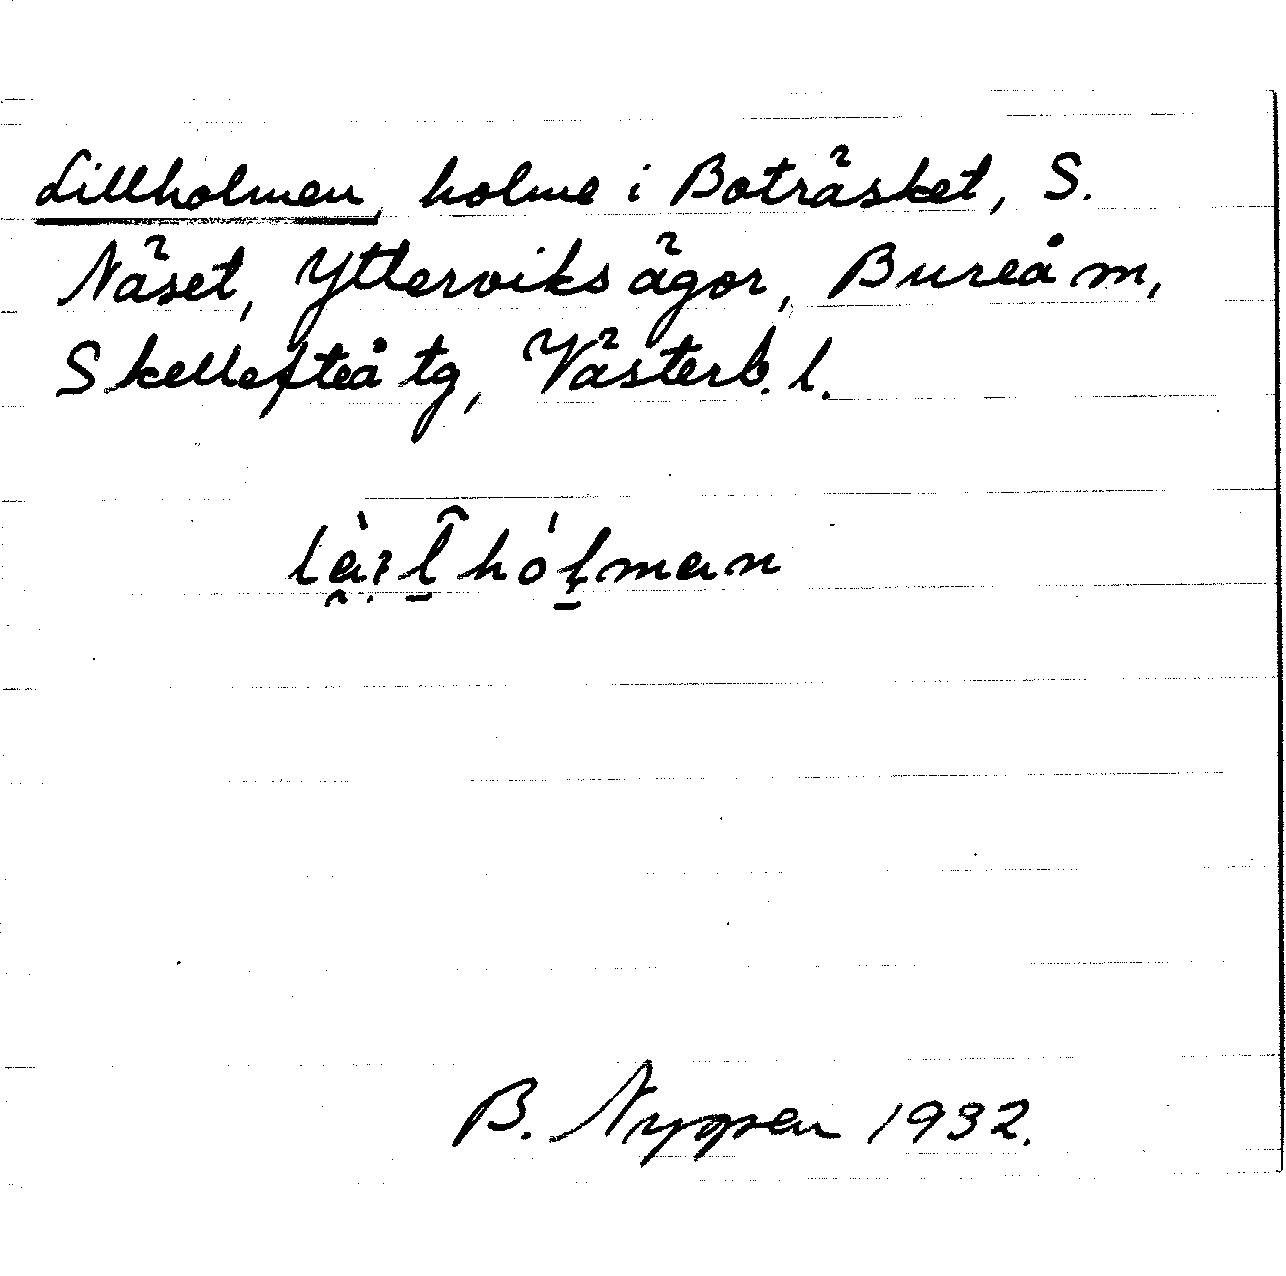 Lillholmen, holme i Boträsket, S.
Näset, Ytterviks ägor, Bureå m,
Skellefteå tg, Västerb. l.
B. 1932.